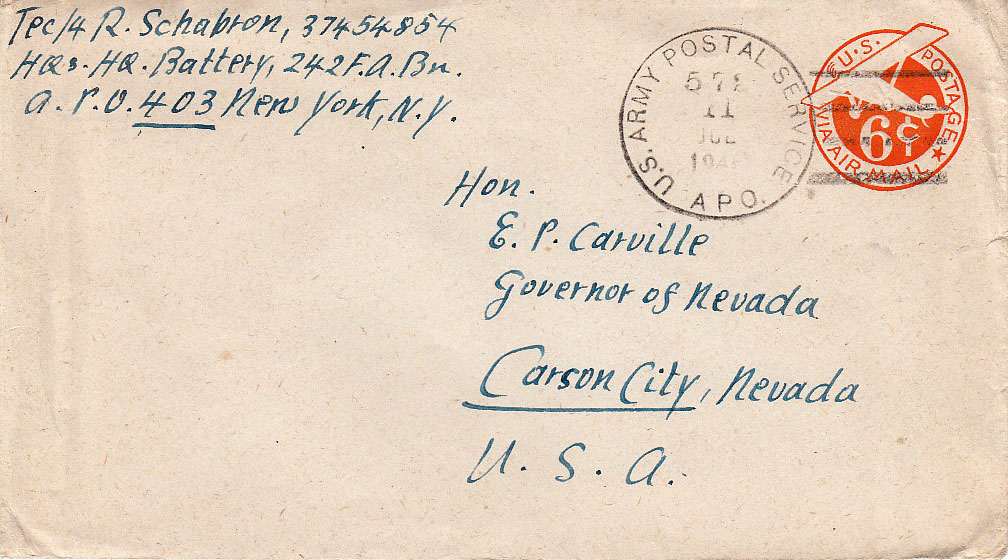 Tec/4 R. Schabron, 37454854
HQs. HQ. Battery, 242 F.A. Bn.
A.P.O. 403 New York, N.Y.
U.S. ARMY POSTAL SERVICE
11
A P O.
U.S. POSTAGE
6¢
VIA AIR MAIL
Hon.
E. P. Carville
Governor of Nevada
Carson City, Nevada
U. S. A.